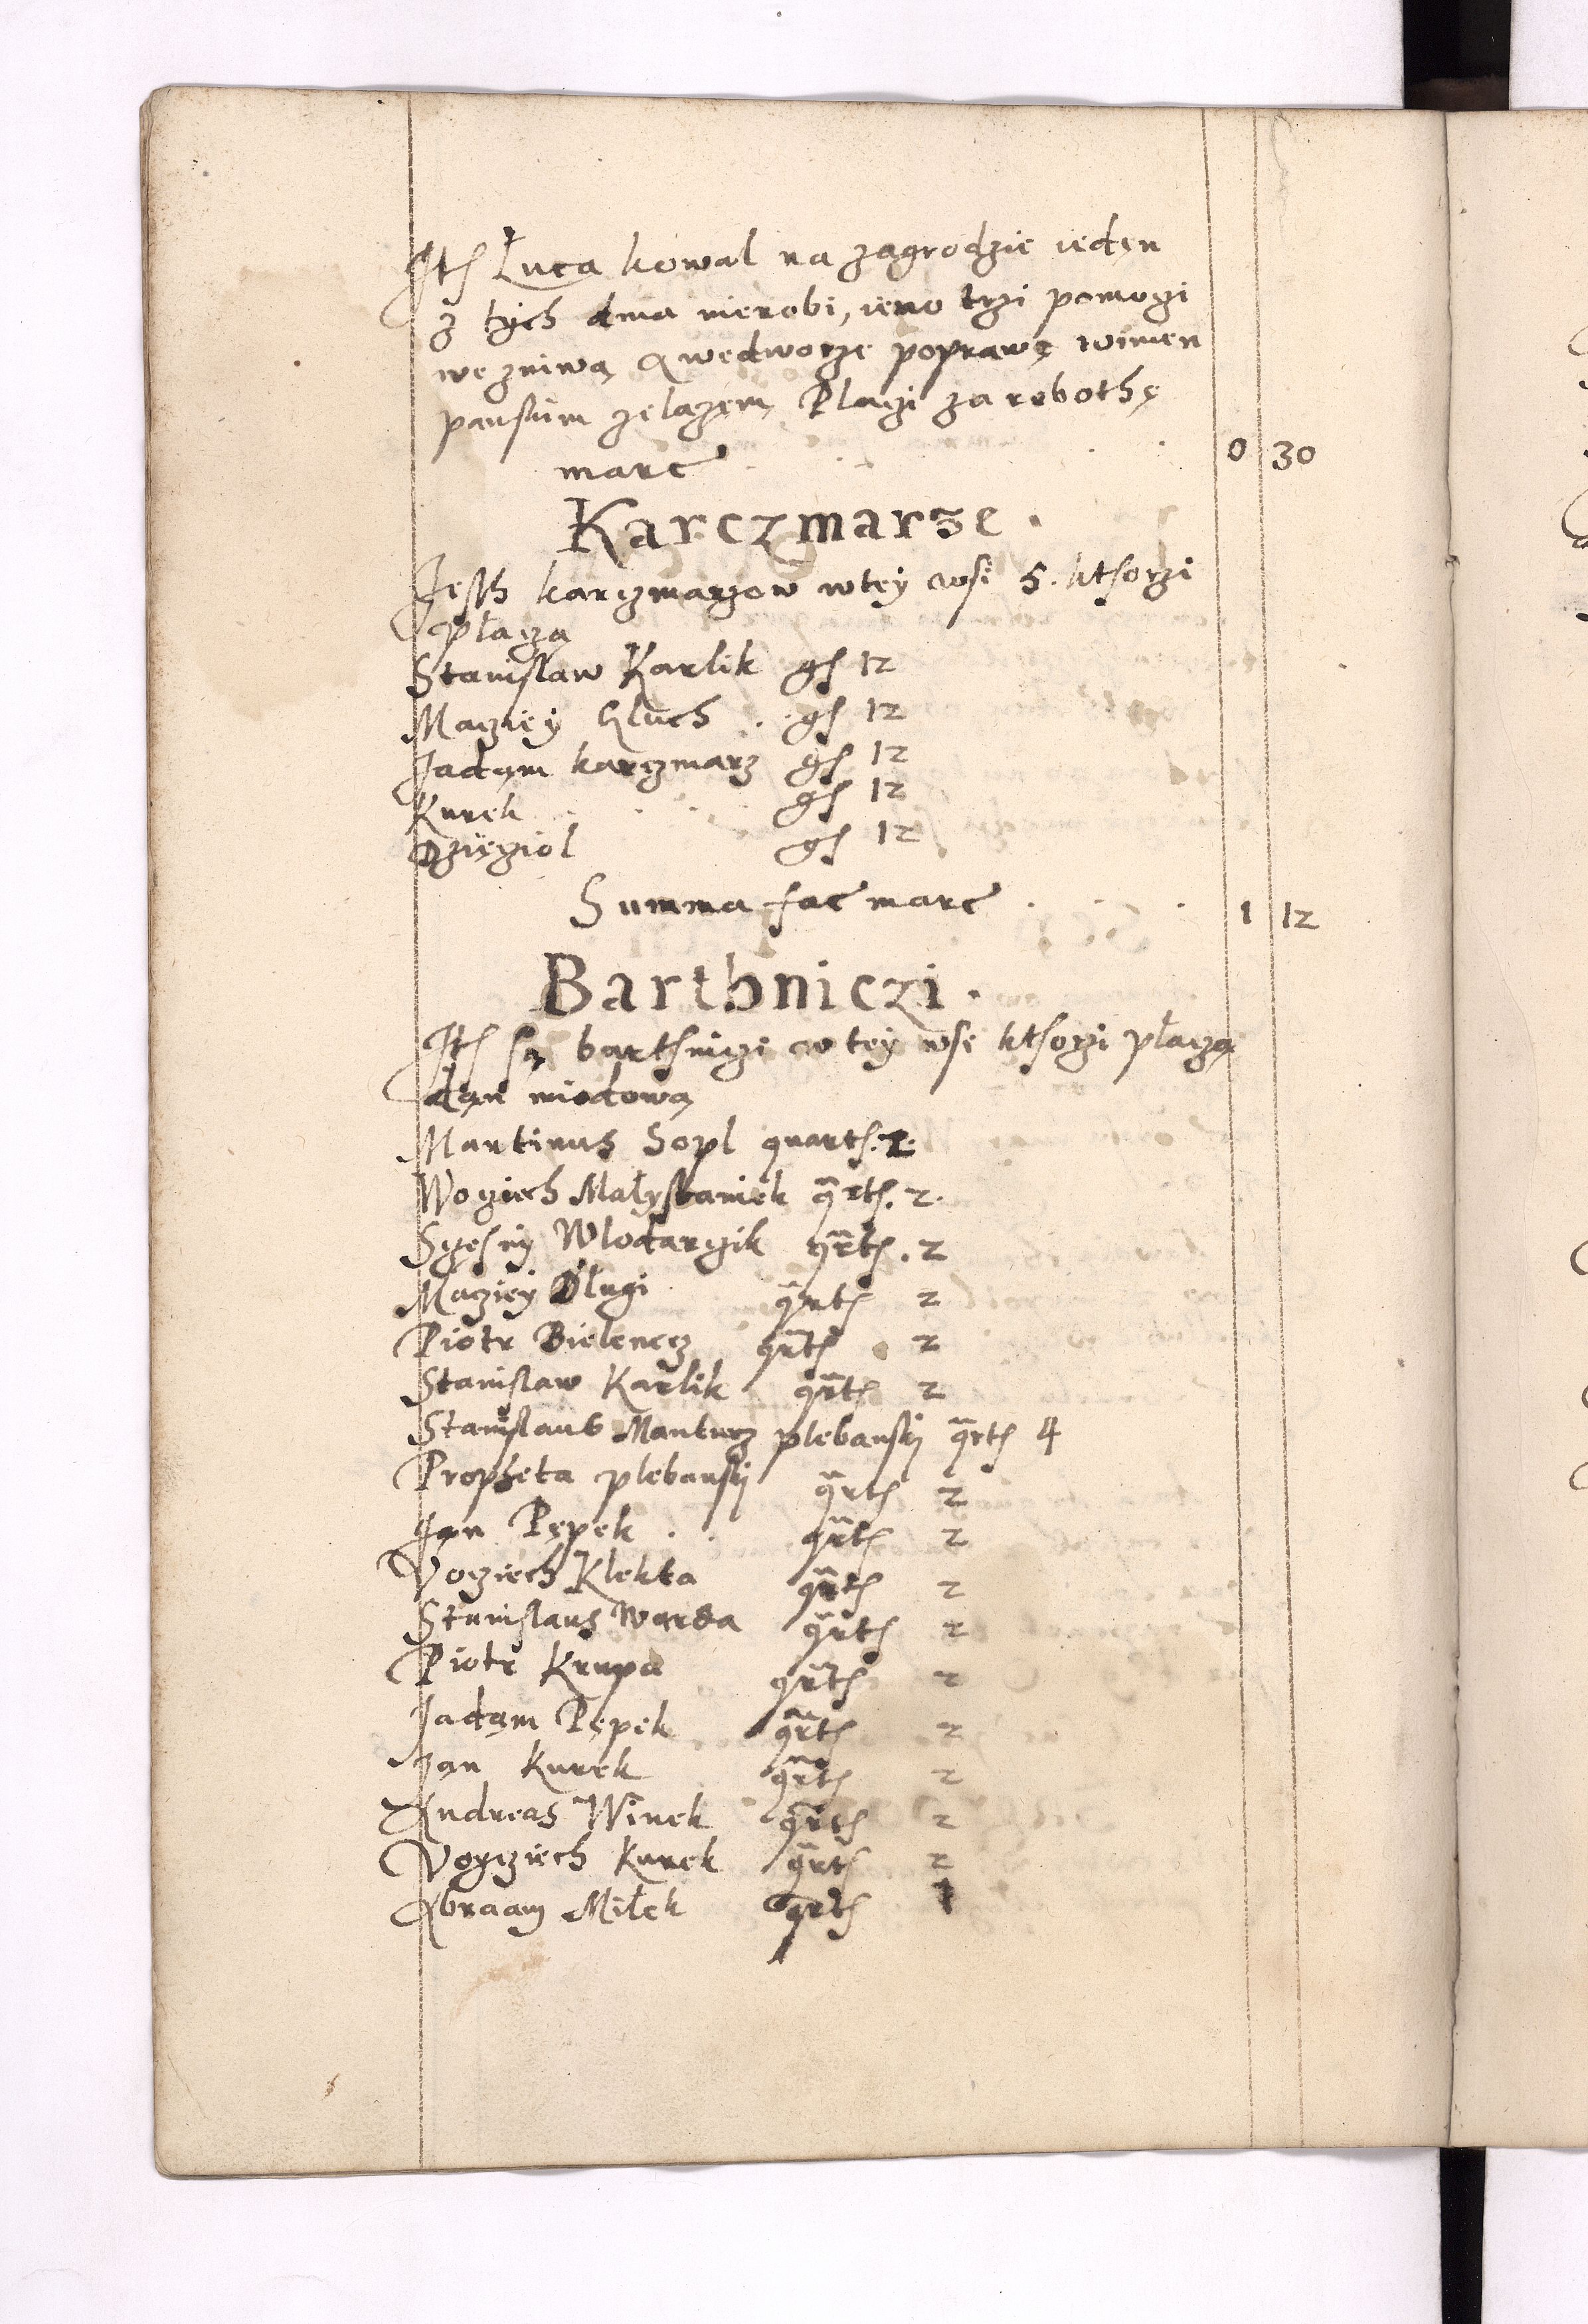 Ith Łuca kowal na zagrodzie ieden
z tych dnia nierobi, ieno trzi pomogi
we zniwa, A wedworze poprawę winien
panskim zelazem, Placzi za robothę
marc 0 30
Karczmarze.
Jesth karczmarzow wtey wsi 5. kthorzi
płaczą
Stanislaw Karlik gs 12
Macziey Gluch . gs 12
Jadam karczmarz gs 12
Kurek gs 12
Dzięziol gs 12
Summa fac marc 1 12
Barthniczi.
Ith są barthniczi w tey wsi kthorzi płaczą
dan miodową
Martinus Sopl quarth. 2.
Wogziech Małystaniek qrth. 2.
Sczesny Wlodarczik qrth. 2
Macziey Długi qrth 2
Piotr Bielencz qrth 2
Stanislaw Karlik qrth 2
Stanislaus Manturz plebansky qrth 4
Propheta plebansky qrth 2
Jan Pępek . . qrth 2
Voyziech Klekta qrth 2
Stanislaus Warda qrth 2
Piotr Krupa qrth 2
Jadam Pępek qrth 2
Jan Kurek qrth 2
Andreas Winek qrth 2
Voyczich Kurek qrth 2
Abraam Miłek qrth 1